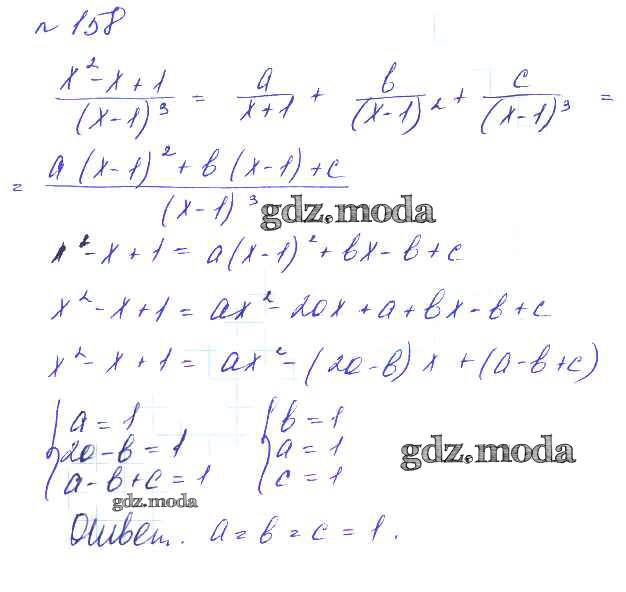 № 158
x² - x + 1 / (x-1)³ = a / x+1 + b / (x-1)² + c / (x-1)³ =
= a(x-1)² + b(x-1) + c / (x-1)³
gdz.moda
x² - x + 1 = a(x-1)² + bx - b + c
x² - x + 1 = ax² - 2ax + a + bx - b + c
x² - x + 1 = ax² - (2a - b) x + (a - b + c)
{ a = 1 { b = 1
2a - b = 1 a = 1 gdz.moda
a - b + c = 1 c = 1
gdz.moda
Ответ. a = b = c = 1.